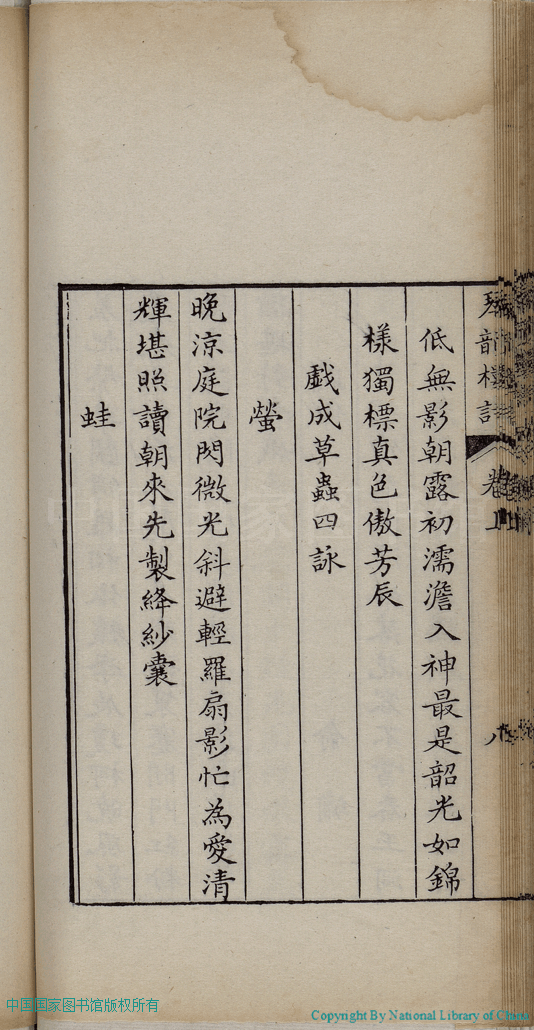 琴韻樓詩 卷上 八
低無影朝露初濡澹入神最是韶光如錦
樣獨標真色傲芳辰
戲成草蟲四詠
螢
晚涼庭院閃微光斜避輕羅扇影忙為愛清
輝堪照讀朝來先製絳紗囊
蛙
中国国家图书馆版权所有
Copyright By National Library of China